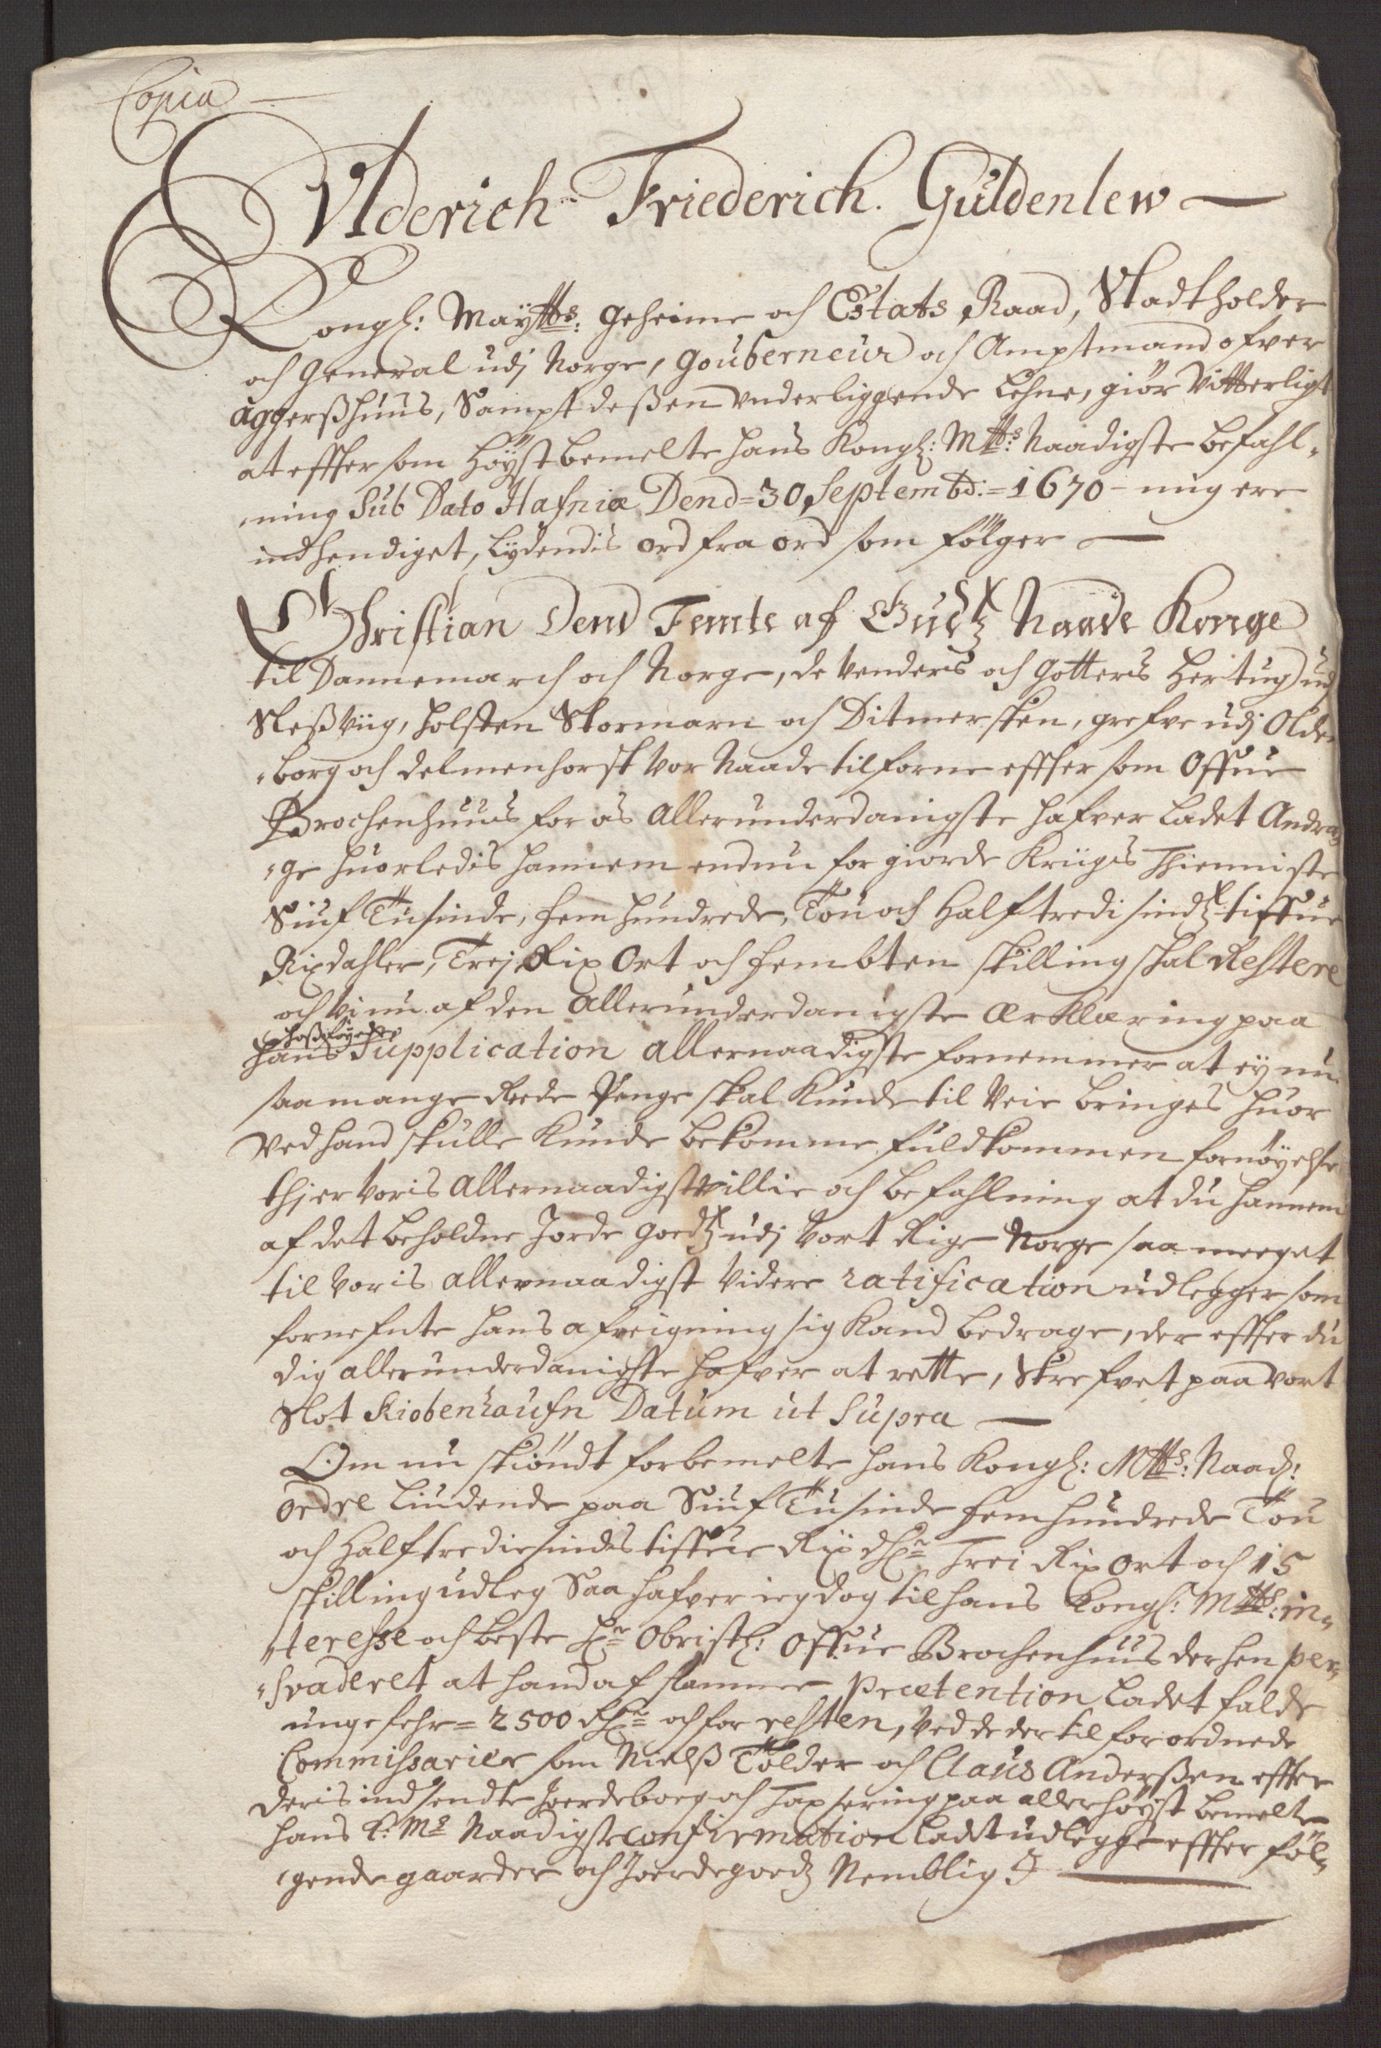 Copia
Vlderich Friederich Guldenlew
Kongl: Maytts: Geheime och Estats Raad, Stadtholder
och General udj Norge, Gouverneur och Amptmand ofver
Aggerßhuus, Sampt deßen underliggende Lehne, giör Vitterligt
at effter som Höystbemelte hans Kongl: Mtts: Naadigste befahl-
ning Sub Dato Hafniæ Dend = 30 Septembr: = 1670 - mig ere
indhendiget, lydendis ord fra ord som fölger
Christian Dend Femte af Gudtz Naade Konge
til Dannemarch och Norge, de Venders och Gotters Hertug udj
Sleßviig, Holsten Stormarn och Ditmersken, grefve udj Olden
borg och Delmenhorst Vor Naade tilforne effter som Offue
Brochenhuus for os Allerunderdanigste hafver Ladet Andra
ge huorledis hannem endnu for giorde Kriigs Thienniste
Siuf Tusinde, fem hundrede, Tou och Halftredisindtztiffue
Rixdahler, Trej Rix Ort och fembten skilling skal Restere
och Vi nu af den Allerunderdanigste Ærklæring paa
hans hoßföyede Supplication allernaadigste fornemmer at ey nu
saa mange Reede Penge skal Kunde til Veie bringes huor
Ved hand skulle Kunde bekomme fuldkommen fornöyelse
thj er Voris Allernaadigst Villie och befahlning at du hannem
af det beholdne Jorde goedtz udj Vort Rige Norge saa meeget
til Voris allernaadigst Videre ratification udlegger som
fornefnte hans afreigning sig Kand bedrage, der effter du
dig allerunderdanigste hafver at rette, Skrefvet paa Vort
Slot Kiobenhaufn Datum ut Supra
Om nu skiöndt forbemelte hans Kongl: Mtts: Naad:
Ordre liudende paa Siuf Tusinde femhundrede Tou
och Halftrediesindes tiffue Rixdlr Trei Rix Ort och 15
skilling udleg Saa hafver ieg dog til hans Kongl: Mtts: in-
teresse och beste Hr Obristl: Offue Brochenhuus derhen per-
svaderet at hand af slammer Prætention Ladet falde
ungefehr = 2500 Rdlr och for resten, Ved de dertil forordnede
Commissarier som Nielß Tolder och Claus Anderßen effter
deris indsendte Jordeboeg och Taxsering paa allerhöyst bemelte
hans K: Ms Naadigste confirmation Ladet udlegge effter föl-
gende gaarder och Jordegoedtz Nemblig